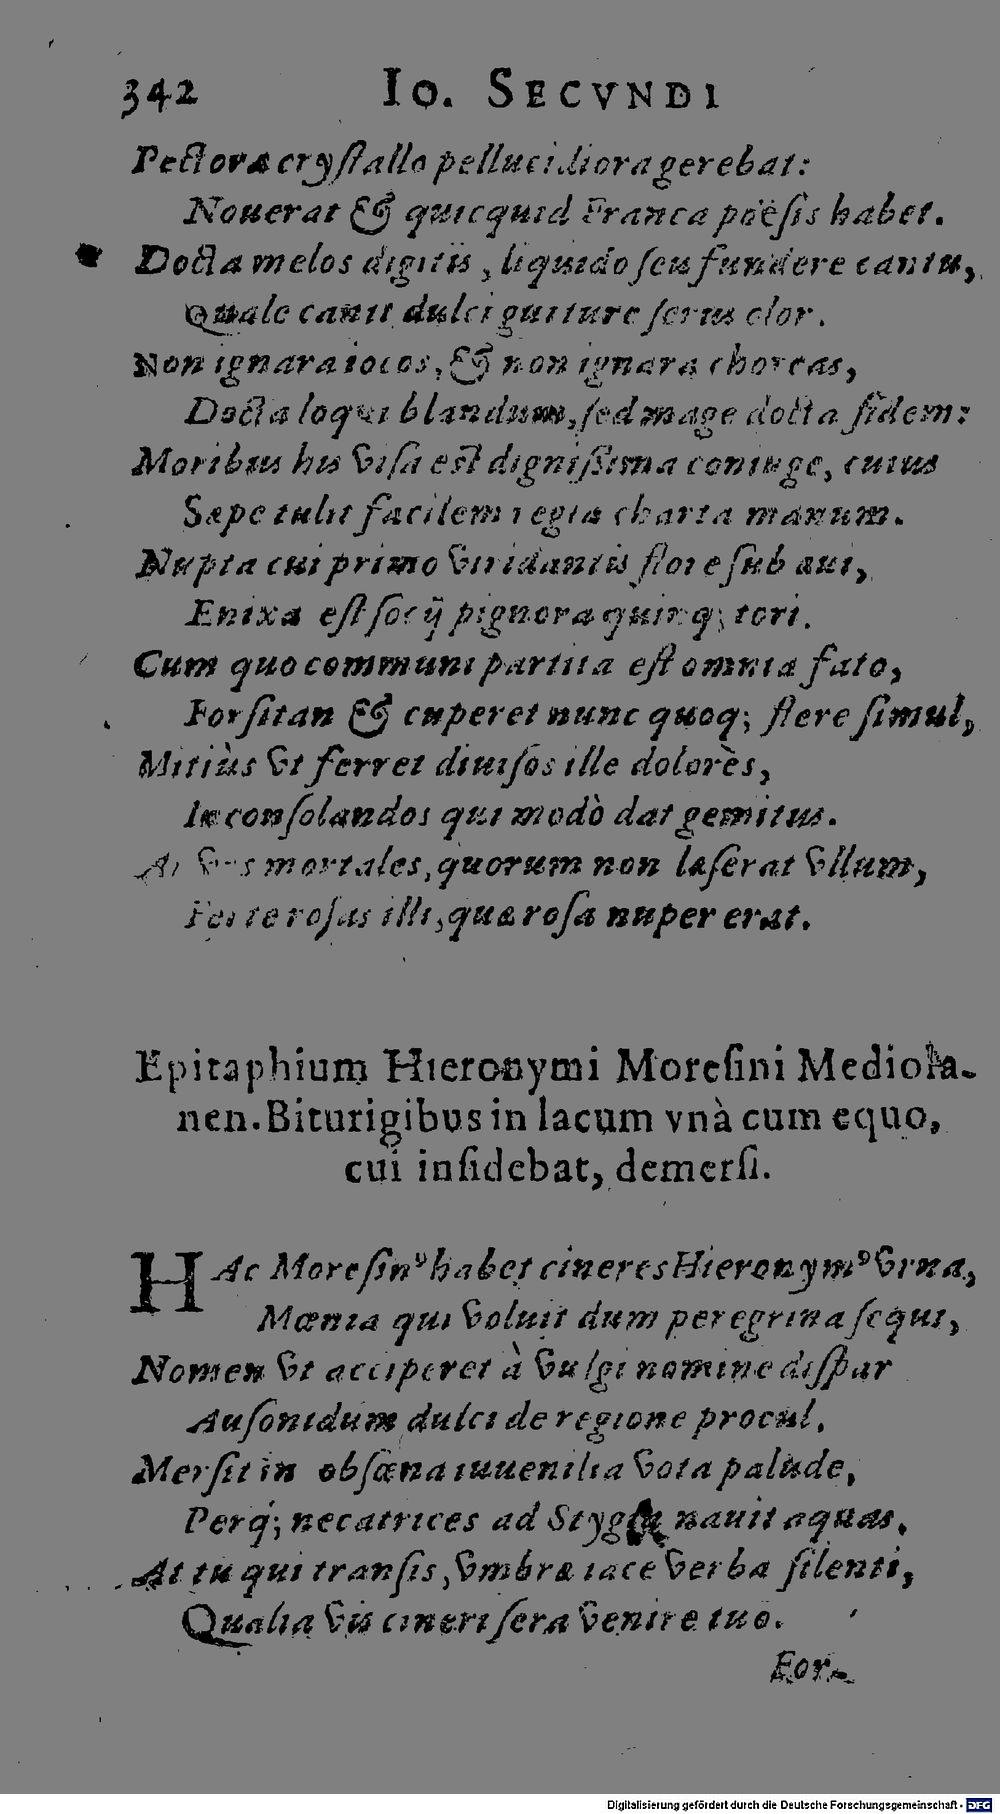 342 IO. SECVNDI
Pectora crystallo pellucidiora gerebat:
Nouerat & quicquid Franca poësis habet.
Docta melos digitis, liquido seu fundere cantu,
Quale canit dulci guiture serus olor.
Non ignara iocos, & non ignara choreas,
Docta loqui blandum, sed mage docta fidem:
Moribus his visa est dignissima coniuge, cuius
Sæpe tulit facilem regia charta manum.
Nupta cui primo viridantis flore sub æui,
Enixa est socij pignora quinq; tori.
Cum quo communi partita est omnia fato,
Forsitan & cuperet nunc quoq; flere simul,
Mitiùs vt ferret diuisos ille dolorès,
Inconsolandos qui modò dat gemitus.
At vos mortales, quorum non læserat vllum,
Ferte rosas illi, quæ rosa nuper erat.
Epitaphium Hieronymi Moresini Mediola-
nen. Biturigibus in lacum vnà cum equo,
cui insidebat, demersi.
HAc Moresinꝰ habet cineres Hieronymꝰ vrna,
Mœnia qui voluit dum peregrina sequi,
Nomen vt acciperet à vulgi nomine dispar
Ausonidum dulci de regione procul.
Mersit in obscœna iuuenilia vota palude,
Perq́; necatrices ad Stygia nauit aquas.
At tu qui transis, vmbræ iace verba silenti,
Qualia vis cineri sera venire tuo.
For-
Digitalisierung gefördert durch die Deutsche Forschungsgemeinschaft - DFG